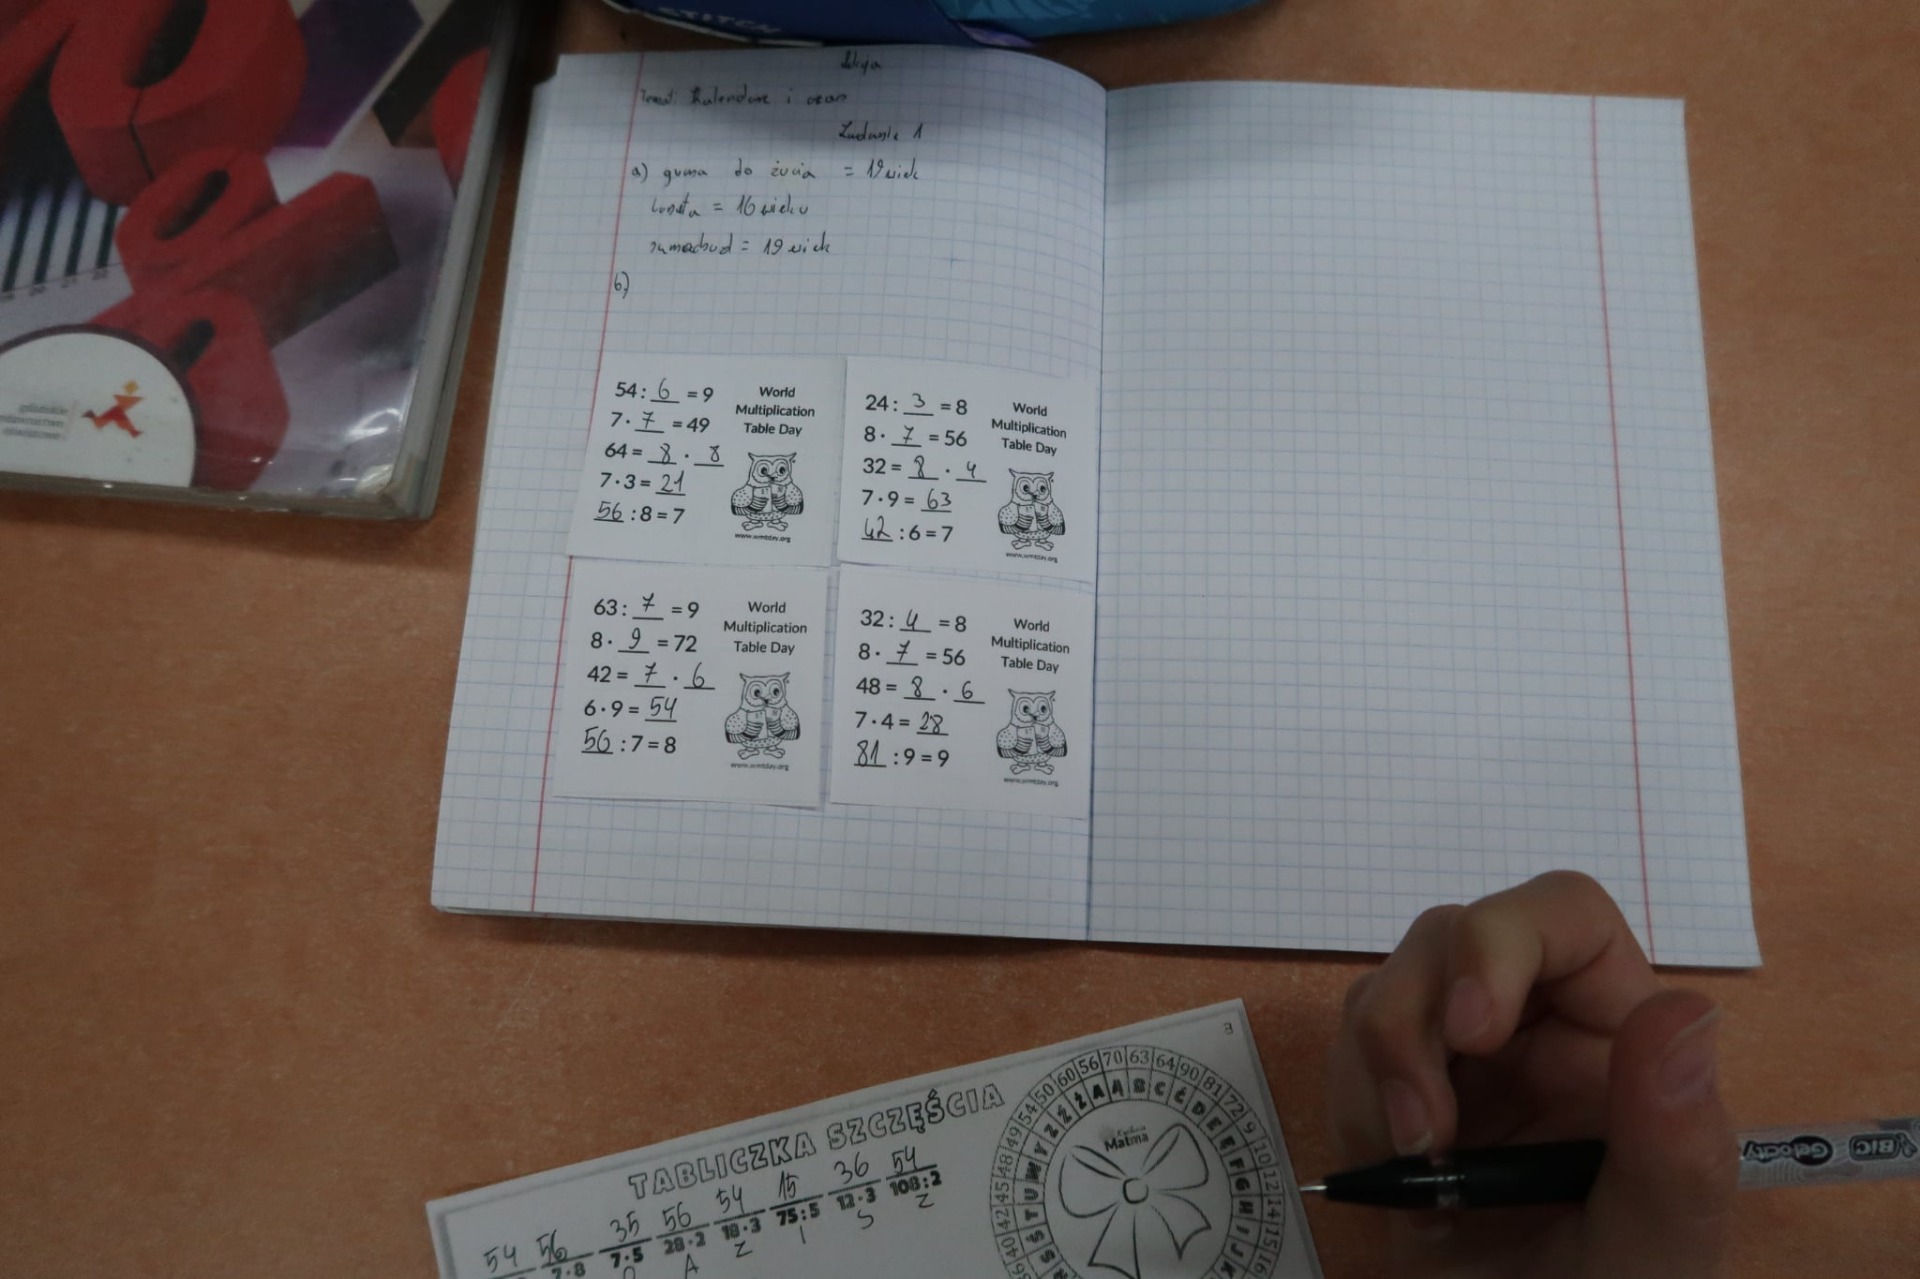 STITCH
Lekcja
Temat: Kalendarz i czas
Zadanie 1
a) guma do żucia = 19 wiek
luneta = 16 wieku
samochod = 19 wiek
b)
54 : 6 = 9
7 · 7 = 49
64 = 8 · 8
7 · 3 = 21
56 : 8 = 7
World
Multiplication
Table Day
www.wmtday.org
24 : 3 = 8
8 · 7 = 56
32 = 8 · 4
7 · 9 = 63
42 : 6 = 7
World
Multiplication
Table Day
www.wmtday.org
63 : 7 = 9
8 · 9 = 72
42 = 7 · 6
6 · 9 = 54
56 : 7 = 8
World
Multiplication
Table Day
www.wmtday.org
32 : 4 = 8
8 · 7 = 56
48 = 8 · 6
7 · 4 = 28
81 : 9 = 9
World
Multiplication
Table Day
www.wmtday.org
3
TABLICZKA SZCZĘŚCIA
54 56 35 56 54 15 36 54
7·8 7·5 28·2 18·3 75:5 12·3 108:2
A Z I S Z
40 42 45 48 49 54 50 60 56 70 63 64 90 81 72 9 10 12 14 15 16
S Ś T U W Y Z Ź Ż A Ą B C Ć D E Ę F G H I J K
Matma
BIC
Gelocity